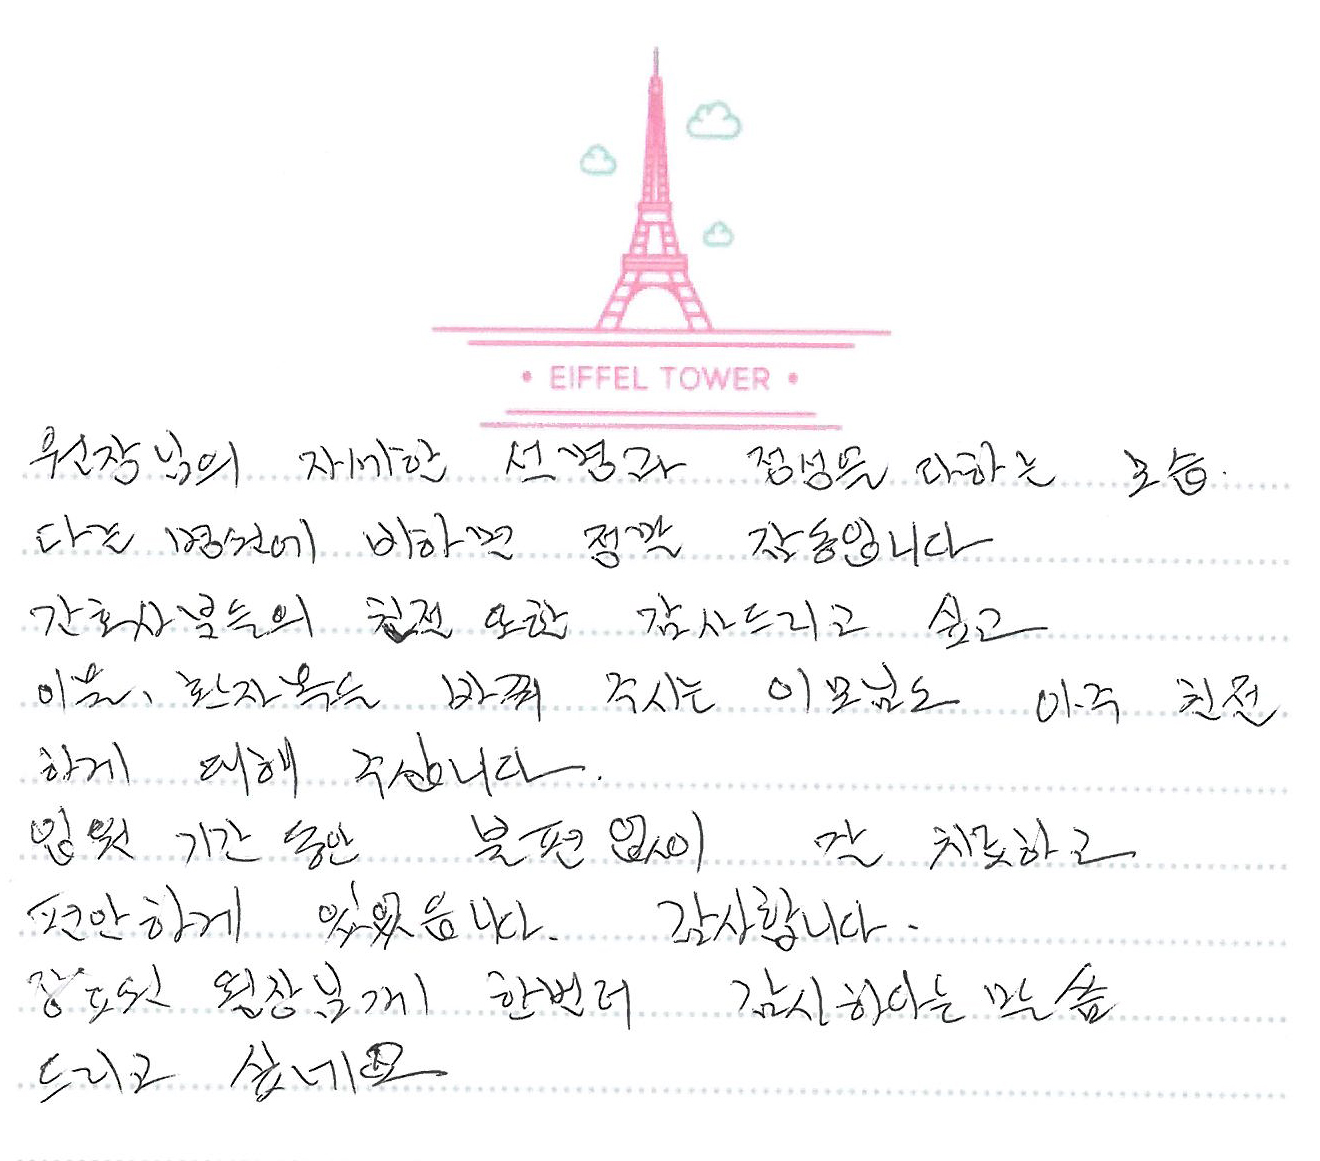 EIFFEL TOWER
원장님의 자세한 설명과 정성을 다하는 모습.
다른 병원에 비하면 정말 감동입니다
간호사분들의 친절 또한 감사드리고 싶고
이불, 환자복등 바꿔 주시는 이모님도 아주 친절
하게 대해 주십니다.
입원 기간 동안 불편 없이 잘 치료하고
편안하게 있었음니다. 감사합니다.
원장님께 한번더 말씀
드리고 싶네요